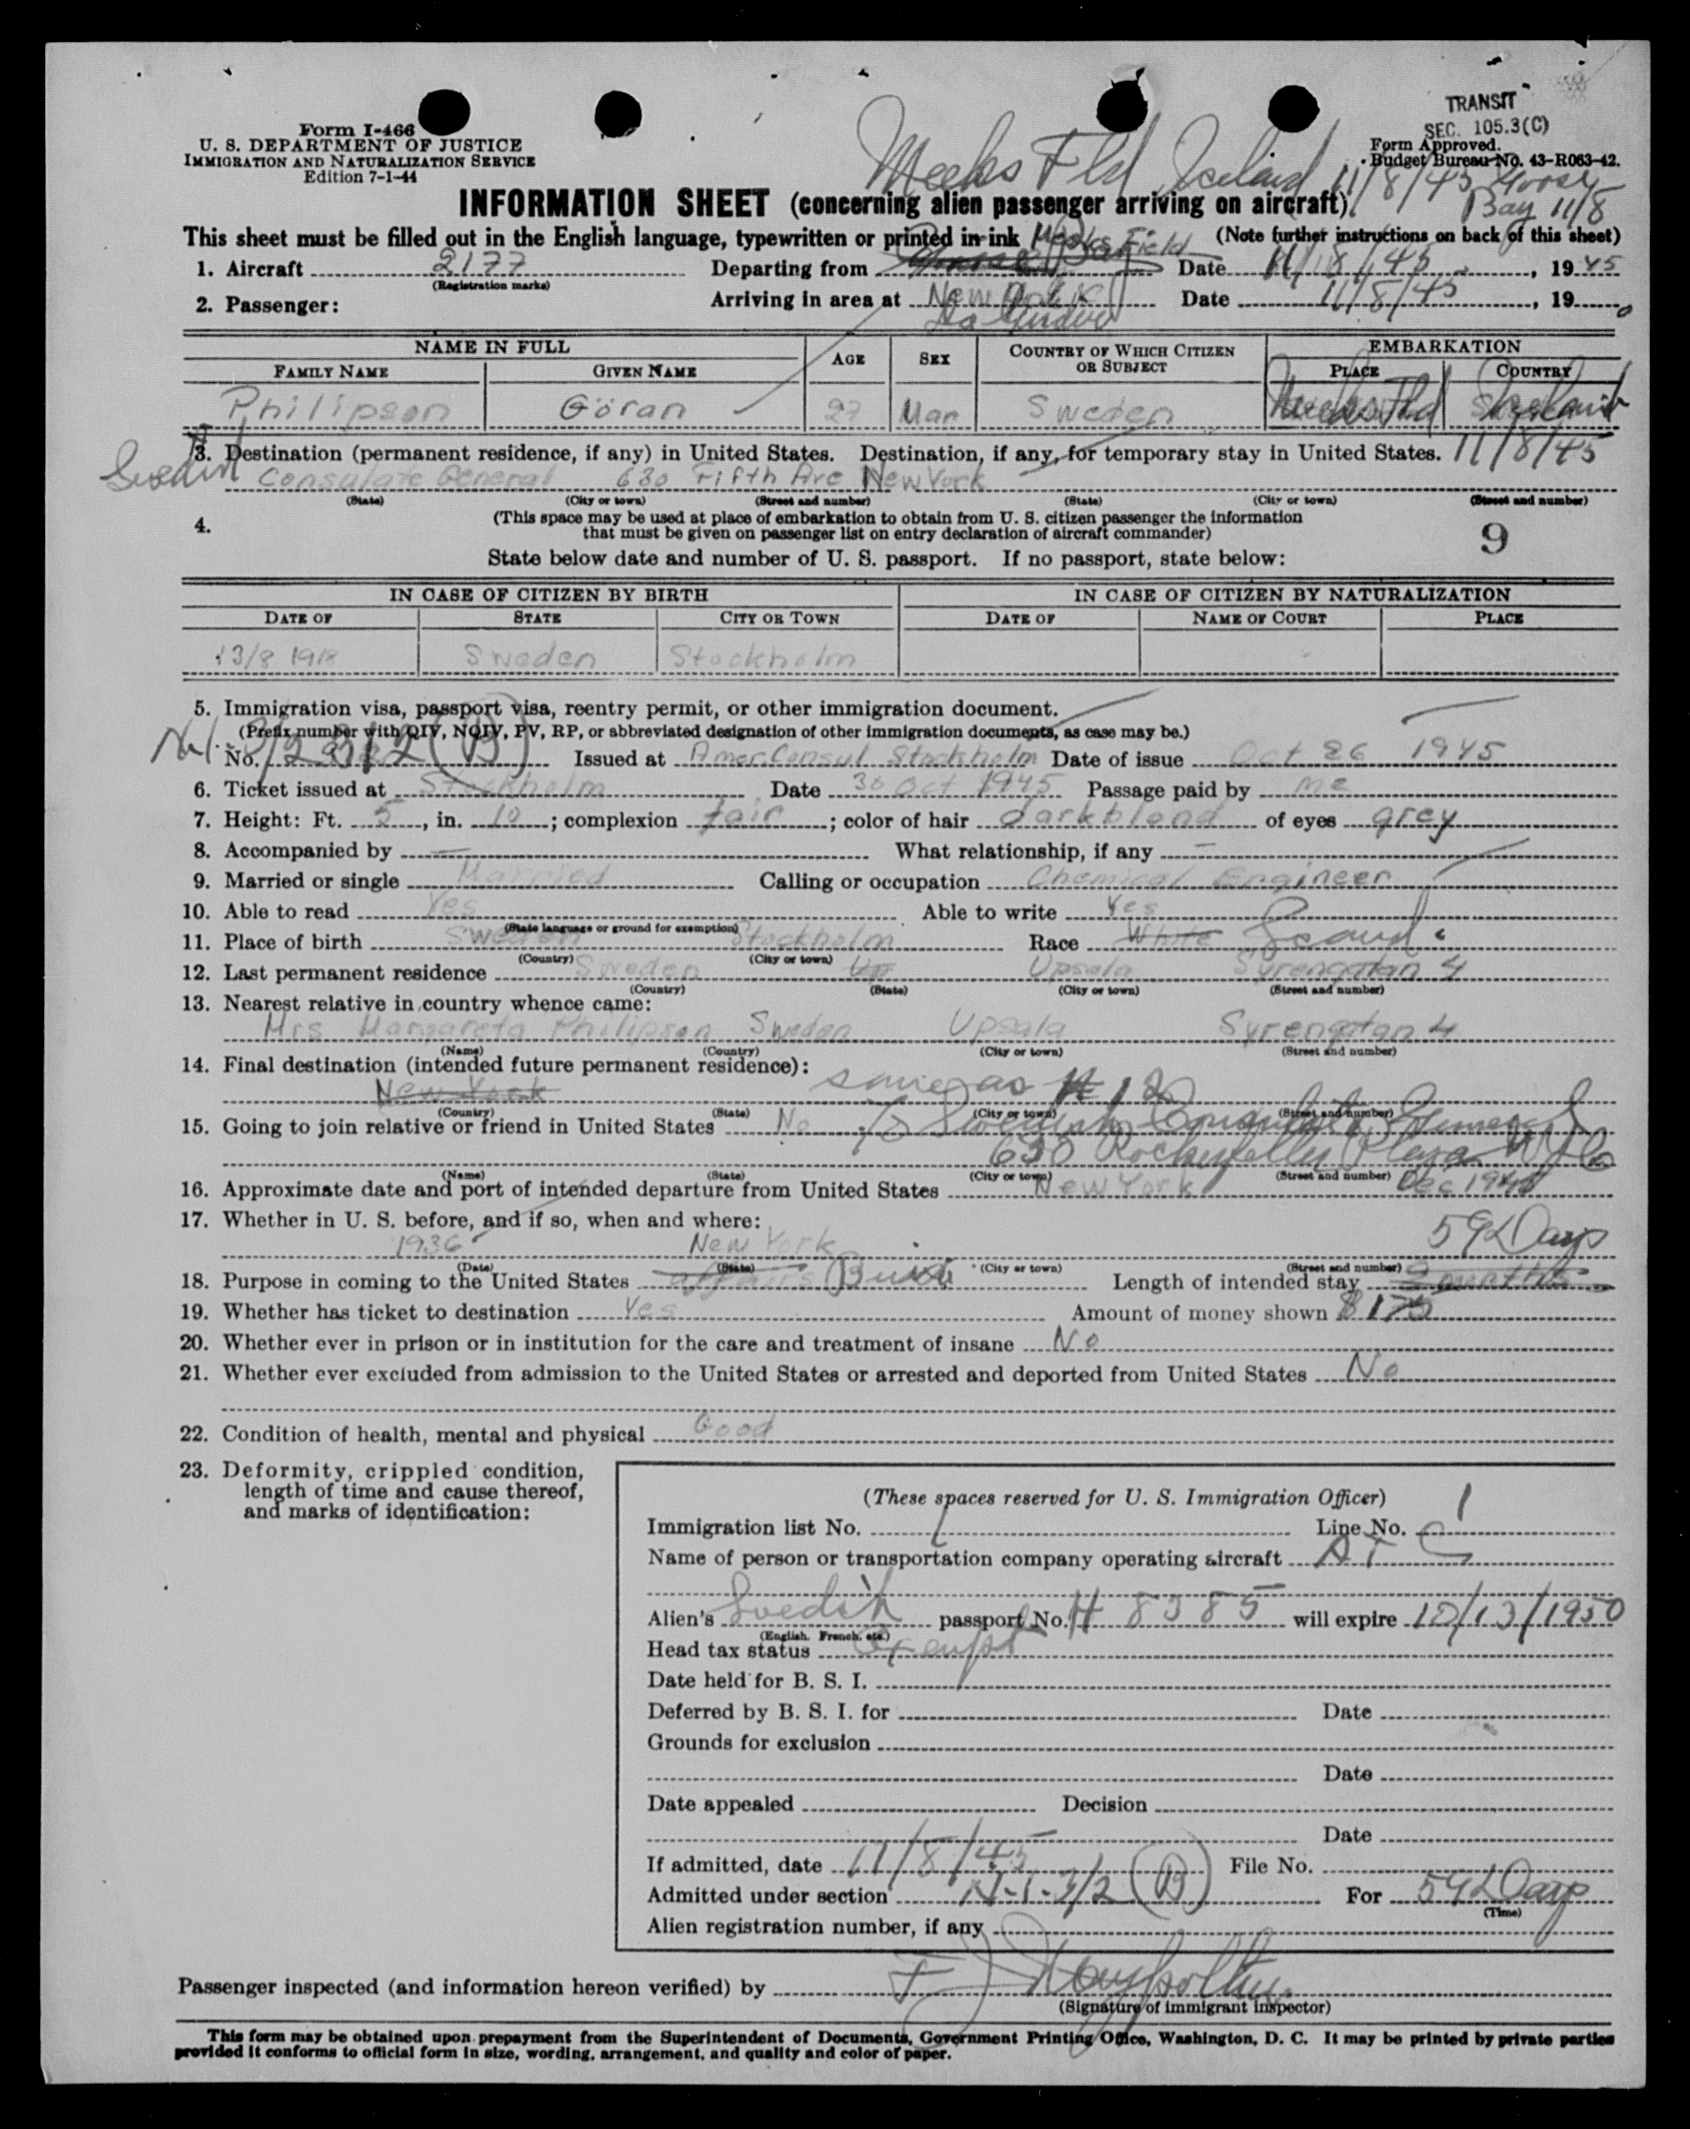 TRANSIT
SEC. 105.3(C)
Form I-466
U. S. DEPARTMENT OF JUSTICE
IMMIGRATION AND NATURALIZATION SERVICE
Edition 7-1-44
Form Approved.
Budget Bureau No. 43-R063-42.
Meeks Fld Iceland 11/8/45 Goose Bay 11/8
INFORMATION SHEET (concerning alien passenger arriving on aircraft)
This sheet must be filled out in the English language, typewritten or printed in ink (Note further instructions on back of this sheet)
1. Aircraft 2177 Departing from Meeks Field Date 11/8/45, 1945
(Registration marks)
2. Passenger: Arriving in area at New York La Guardia Date 11/8/45, 19
NAME IN FULL AGE SEX COUNTRY OF WHICH CITIZEN OR SUBJECT EMBARKATION
FAMILY NAME GIVEN NAME PLACE COUNTRY
Philipson Göran 27 Man Sweden Meeks Fld Iceland
3. Destination (permanent residence, if any) in United States. Destination, if any, for temporary stay in United States. 11/8/45
Swedish Consulate General 630 Fifth Ave New York
(State) (City or town) (Street and number) (State) (City or town) (Street and number)
4. (This space may be used at place of embarkation to obtain from U. S. citizen passenger the information
that must be given on passenger list on entry declaration of aircraft commander)
9
State below date and number of U. S. passport. If no passport, state below:
IN CASE OF CITIZEN BY BIRTH IN CASE OF CITIZEN BY NATURALIZATION
DATE OF STATE CITY OR TOWN DATE OF NAME OF COURT PLACE
13/8 1918 Sweden Stockholm
5. Immigration visa, passport visa, reentry permit, or other immigration document.
(Prefix number with QIV, NQIV, PV, RP, or abbreviated designation of other immigration documents, as case may be.)
No. Issued at Amer. Consul Stockholm Date of issue Oct 26 1945
6. Ticket issued at Stockholm Date 30 Oct 1945 Passage paid by me
7. Height: Ft. 5, in. 10; complexion fair; color of hair darkblond of eyes grey
8. Accompanied by — What relationship, if any —
9. Married or single Married Calling or occupation Chemical Engineer
10. Able to read Yes Able to write Yes
(State language or ground for exemption)
11. Place of birth Sweden Stockholm Race White Scand.
(Country) (City or town)
12. Last permanent residence Sweden Up Upsala Syrengatan 4
(Country) (State) (City or town) (Street and number)
13. Nearest relative in country whence came:
Mrs Margareta Philipson Sweden Upsala Syrengatan 4
(Name) (Country) (City or town) (Street and number)
14. Final destination (intended future permanent residence):
New York same as # 12
(Country) (State) (City or town) (Street and number)
15. Going to join relative or friend in United States No % Swedish Consulate General
630 Rockefeller Plaza NYC
(Name) (State) (City or town) (Street and number)
16. Approximate date and port of intended departure from United States New York Dec 1945
17. Whether in U. S. before, and if so, when and where:
1936 New York 59 Days
(Date) (State) (City or town) (Street and number)
18. Purpose in coming to the United States affairs Busi Length of intended stay 2 months
19. Whether has ticket to destination Yes Amount of money shown $175
20. Whether ever in prison or in institution for the care and treatment of insane No
21. Whether ever excluded from admission to the United States or arrested and deported from United States No
22. Condition of health, mental and physical Good
23. Deformity, crippled condition,
length of time and cause thereof,
and marks of identification:
(These spaces reserved for U. S. Immigration Officer)
Immigration list No. 1 Line No. 1
Name of person or transportation company operating aircraft ATC
Alien's Swedish passport No. H 8385 will expire 10/13/1950
(English, French, etc.)
Head tax status Exempt
Date held for B. S. I.
Deferred by B. S. I. for Date
Grounds for exclusion
Date
Date appealed Decision
Date
If admitted, date 11/8/45 File No.
Admitted under section N-I-3/2 (B) For 59 Days
(Time)
Alien registration number, if any
Passenger inspected (and information hereon verified) by
(Signature of immigrant inspector)
This form may be obtained upon prepayment from the Superintendent of Documents, Government Printing Office, Washington, D. C. It may be printed by private parties
provided it conforms to official form in size, wording, arrangement, and quality and color of paper.